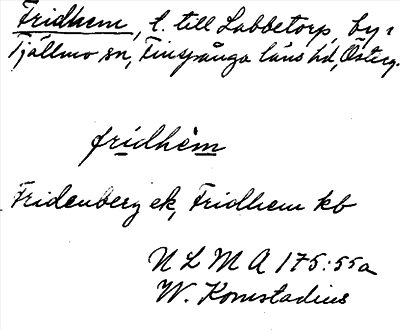 Fridhem, l. till Labbetorp, by i
Tjällmo sn, Finspånga läns hd, Österg.
fridhèm
Fridenberg ek, Fridhem kb
N L M A 175:55a
W. Komstadius